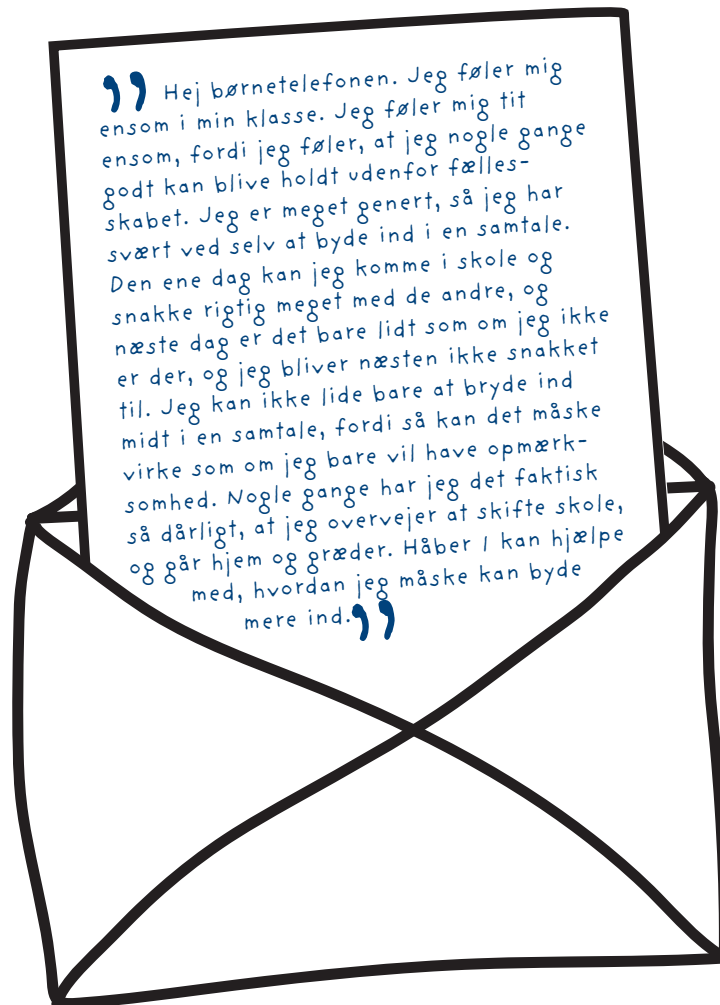 ❜❜ Hej børnetelefonen. Jeg føler mig
ensom i min klasse. Jeg føler mig tit
ensom, fordi jeg føler, at jeg nogle gange
godt kan blive holdt udenfor fælles-
skabet. Jeg er meget genert, så jeg har
svært ved selv at byde ind i en samtale.
Den ene dag kan jeg komme i skole og
snakke rigtig meget med de andre, og
næste dag er det bare lidt som om jeg ikke
er der, og jeg bliver næsten ikke snakket
til. Jeg kan ikke lide bare at bryde ind
midt i en samtale, fordi så kan det måske
virke som om jeg bare vil have opmærk-
somhed. Nogle gange har jeg det faktisk
så dårligt, at jeg overvejer at skifte skole,
og går hjem og græder. Håber I kan hjælpe
med, hvordan jeg måske kan byde
mere ind.❜❜